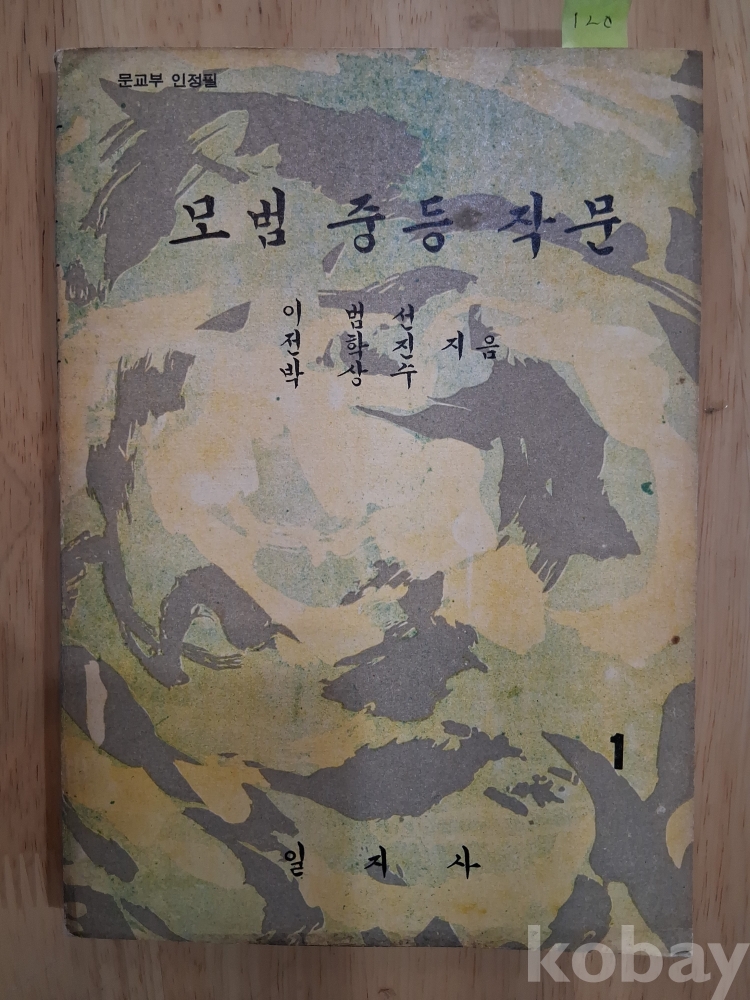 120
문교부 인정필
모범 중등 작문
이 범 선
전 학 진 지음
박 상 수
1
일 지 사
kobay